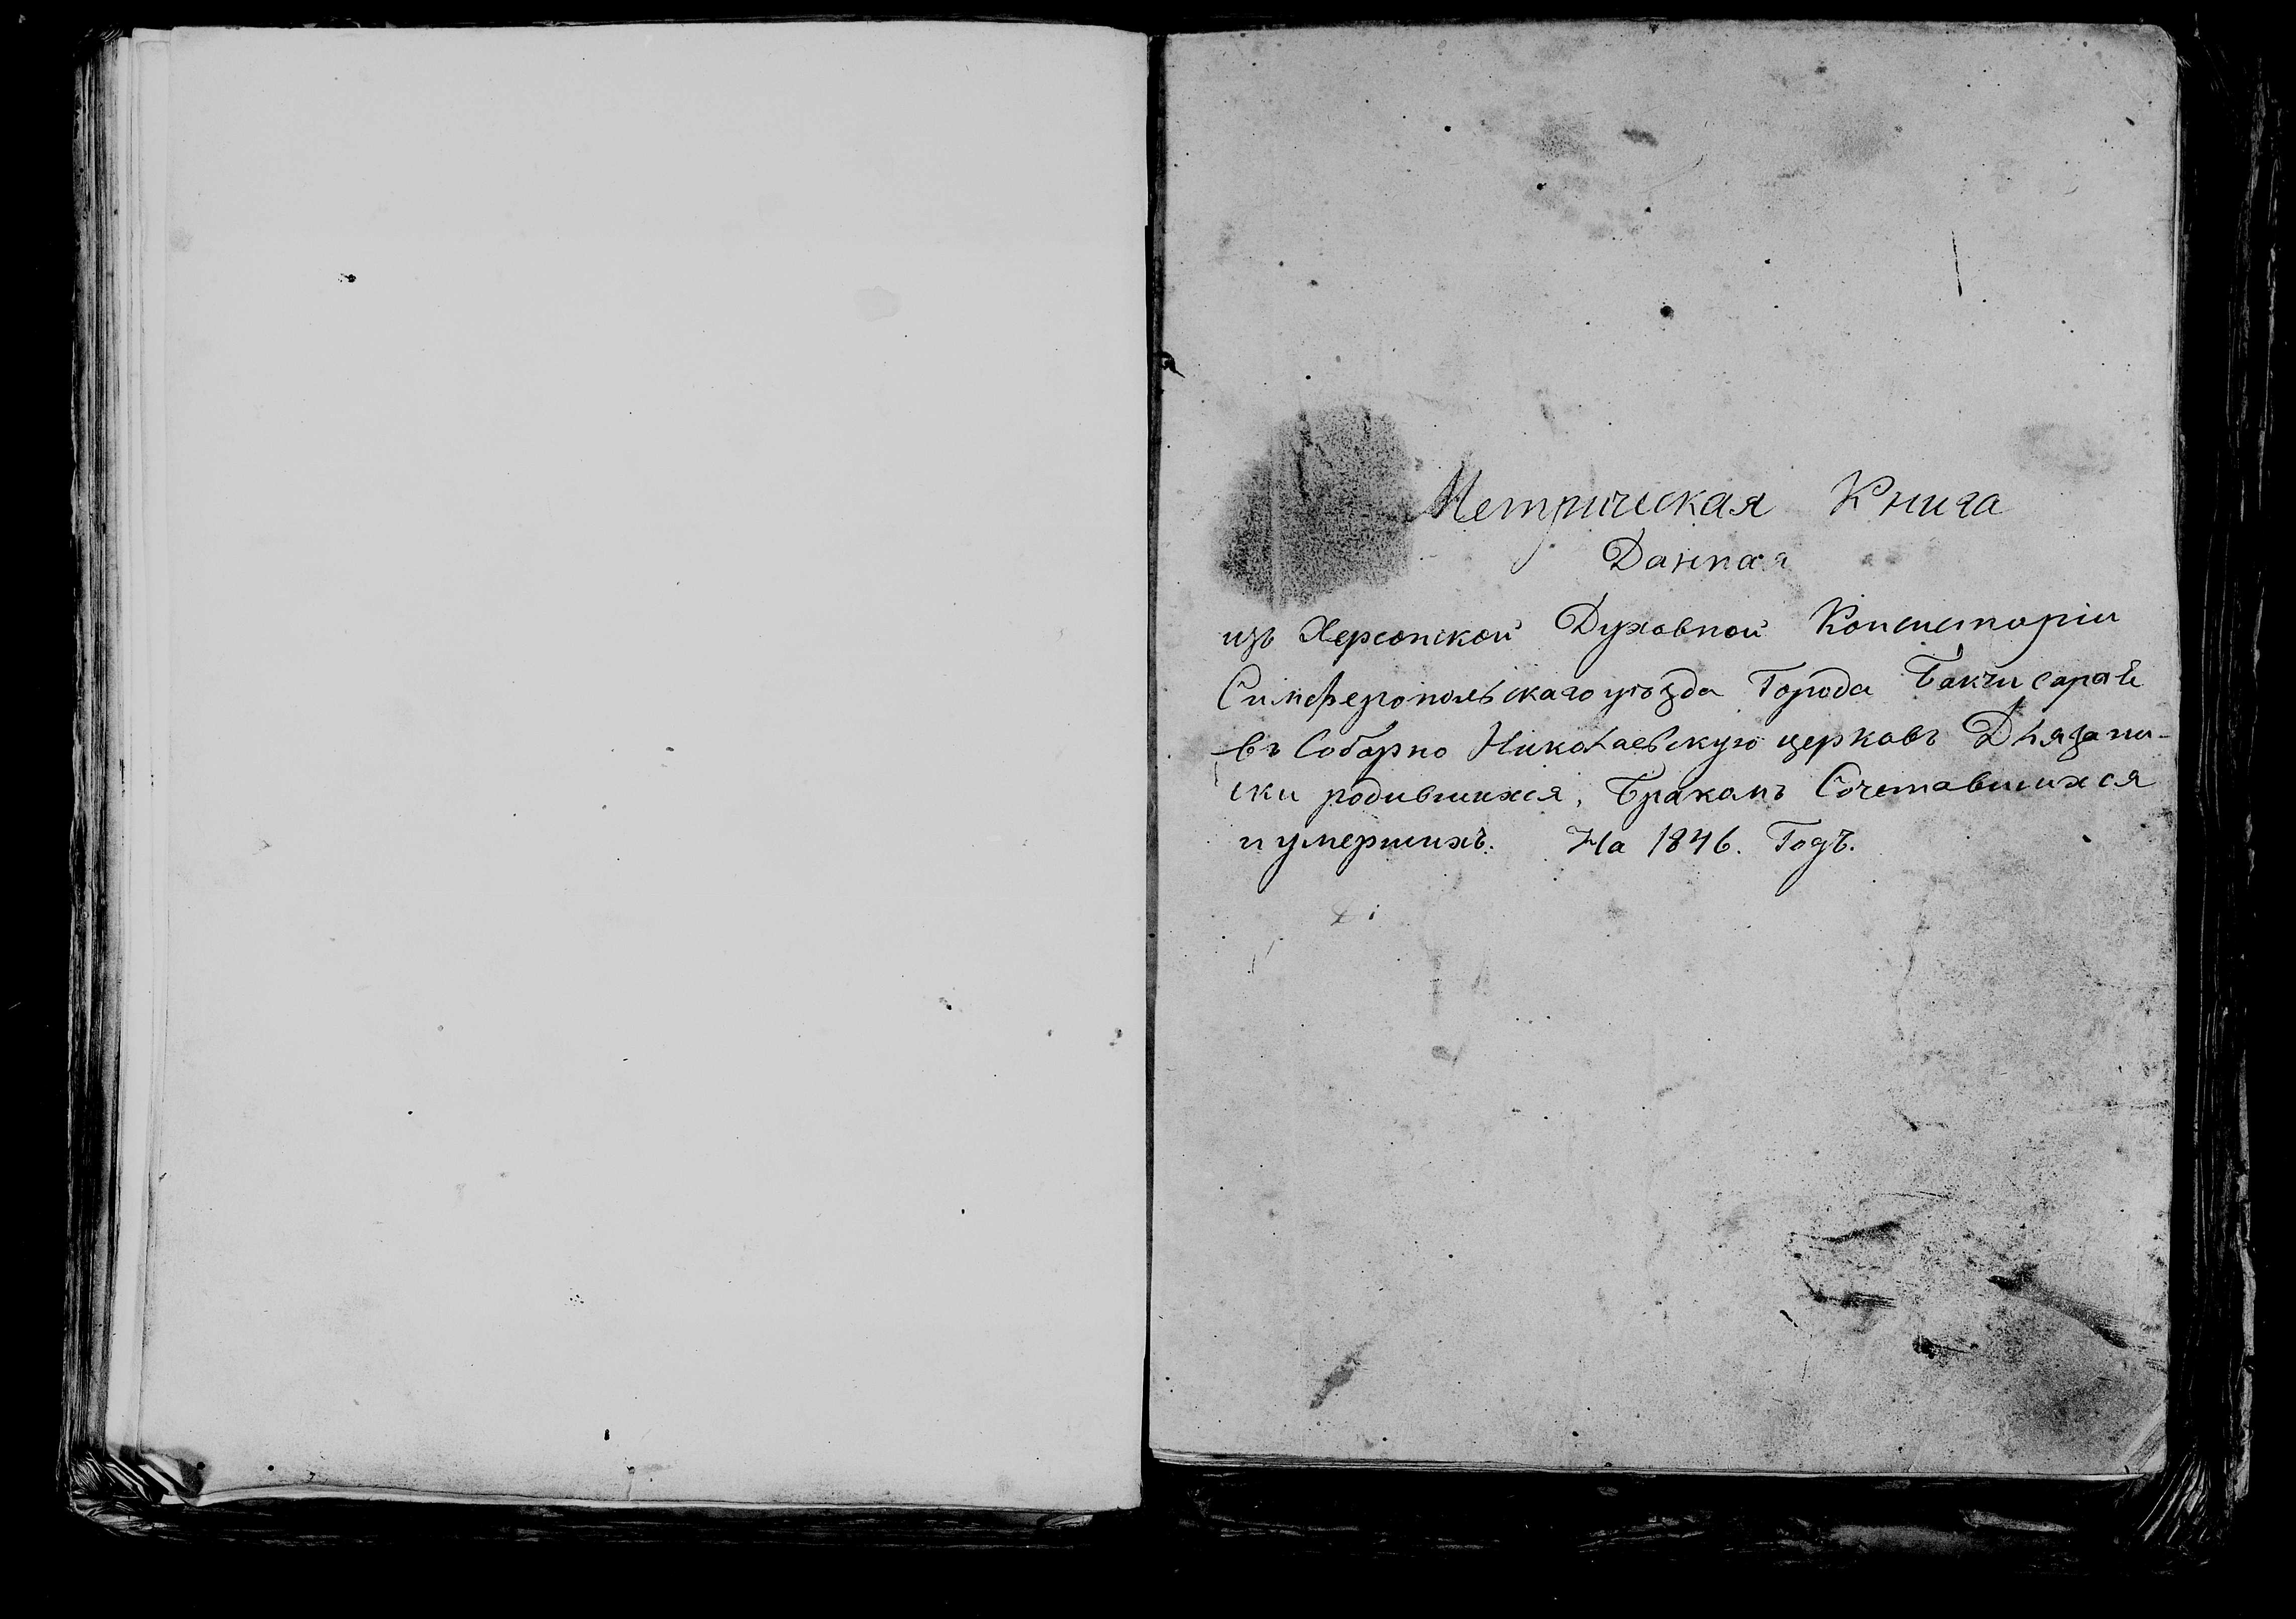 Метрическая Книга
Данная
изъ Херсонской Духовной Консисторіи
Симферопольскаго уѣзда Города Бакчисарай
въ Соборно Николаевскую церковъ Для запи-
ски родившихся, Бракомъ Сочетавшихся
и умершихъ. На 1846. Годъ.